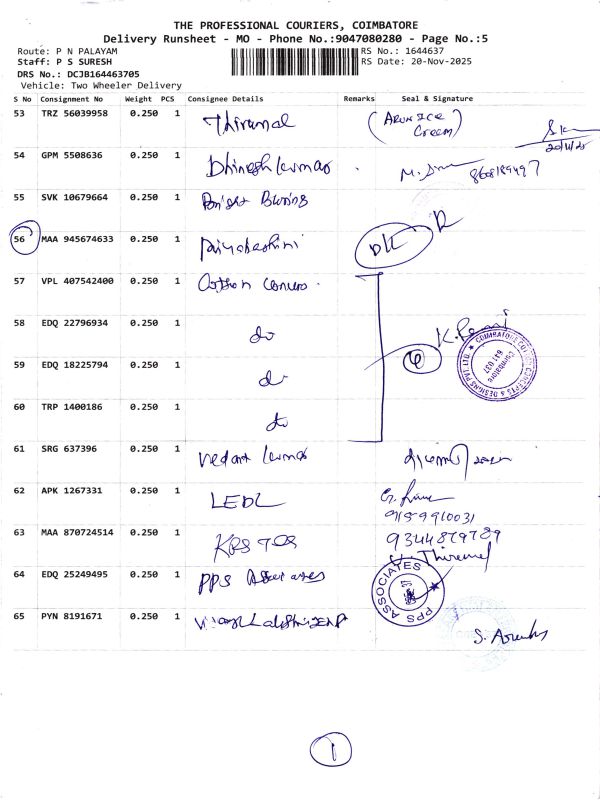 THE PROFESSIONAL COURIERS, COIMBATORE
Delivery Runsheet - MO - Phone No.:9047080280 - Page No.:5
Route: P N PALAYAM
RS No.: 1644637
Staff: P S SURESH
RS Date: 20-Nov-2025
DRS No.: DCJB164463705
Vehicle: Two Wheeler Delivery
S No Consignment No Weight PCS Consignee Details Remarks Seal & Signature
53 TRZ 56039958 0.250 1 Thirumal (Arun Ice Cream)
54 GPM 5508636 0.250 1 Dhinesh Kumar
55 SVK 10679664 0.250 1
56 MAA 945674633 0.250 1 Priyadarshini
57 VPL 407542400 0.250 1 Cotton
58 EDQ 22796934 0.250 1 do
59 EDQ 18225794 0.250 1 do
60 TRP 1400186 0.250 1 do
COIMBATORE COTTON CONCEPTS & DESIGNS PVT. LTD.
Coimbatore
641 037
61 SRG 637396 0.250 1 Vedant Kumar
62 APK 1267331 0.250 1
9159910031
63 MAA 870724514 0.250 1
64 EDQ 25249495 0.250 1 PPS Associates
PPS ASSOCIATES
65 PYN 8191671 0.250 1
1